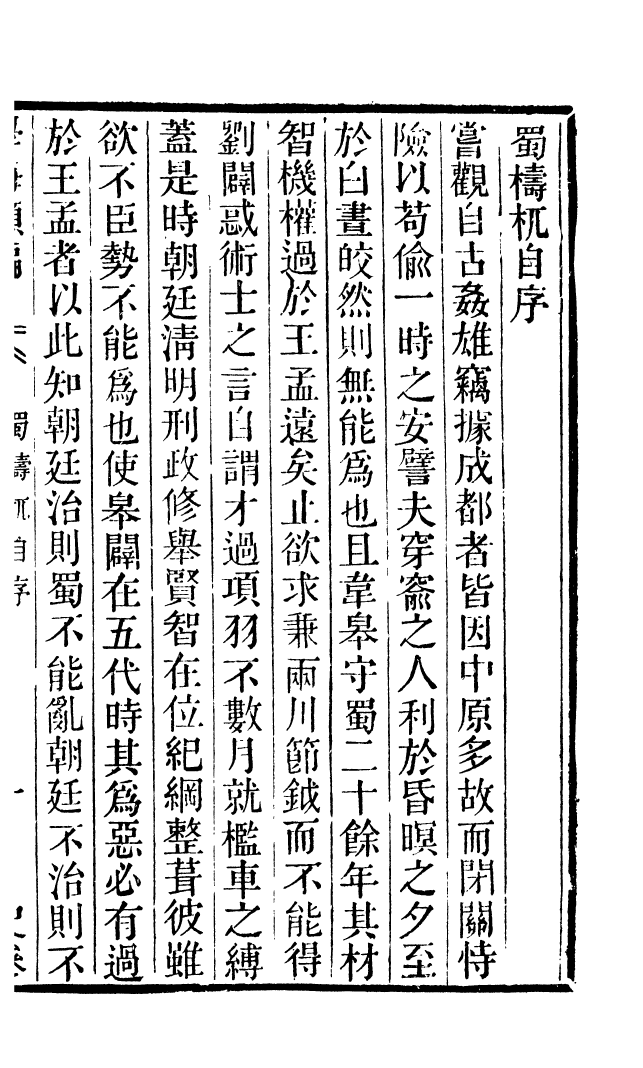 蜀檮杌自序
嘗觀自古姦雄竊據成都者皆因中原多故而閉關恃
險以苟偷一時之安譬夫穿窬之人利於昏暝之夕至
於白晝皎然則無能爲也且韋皋守蜀二十餘年其材
智機權過於王孟遠矣止欲求兼兩川節鉞而不能得
劉闢惑術士之言自謂才過項羽不數月就檻車之縛
蓋是時朝廷淸明刑政修舉賢智在位紀綱整葺彼雖
欲不臣勢不能爲也使皋闢在五代時其爲惡必有過
於王孟者以此知朝廷治則蜀不能亂朝廷不治則不
蜀檮杌自序 一